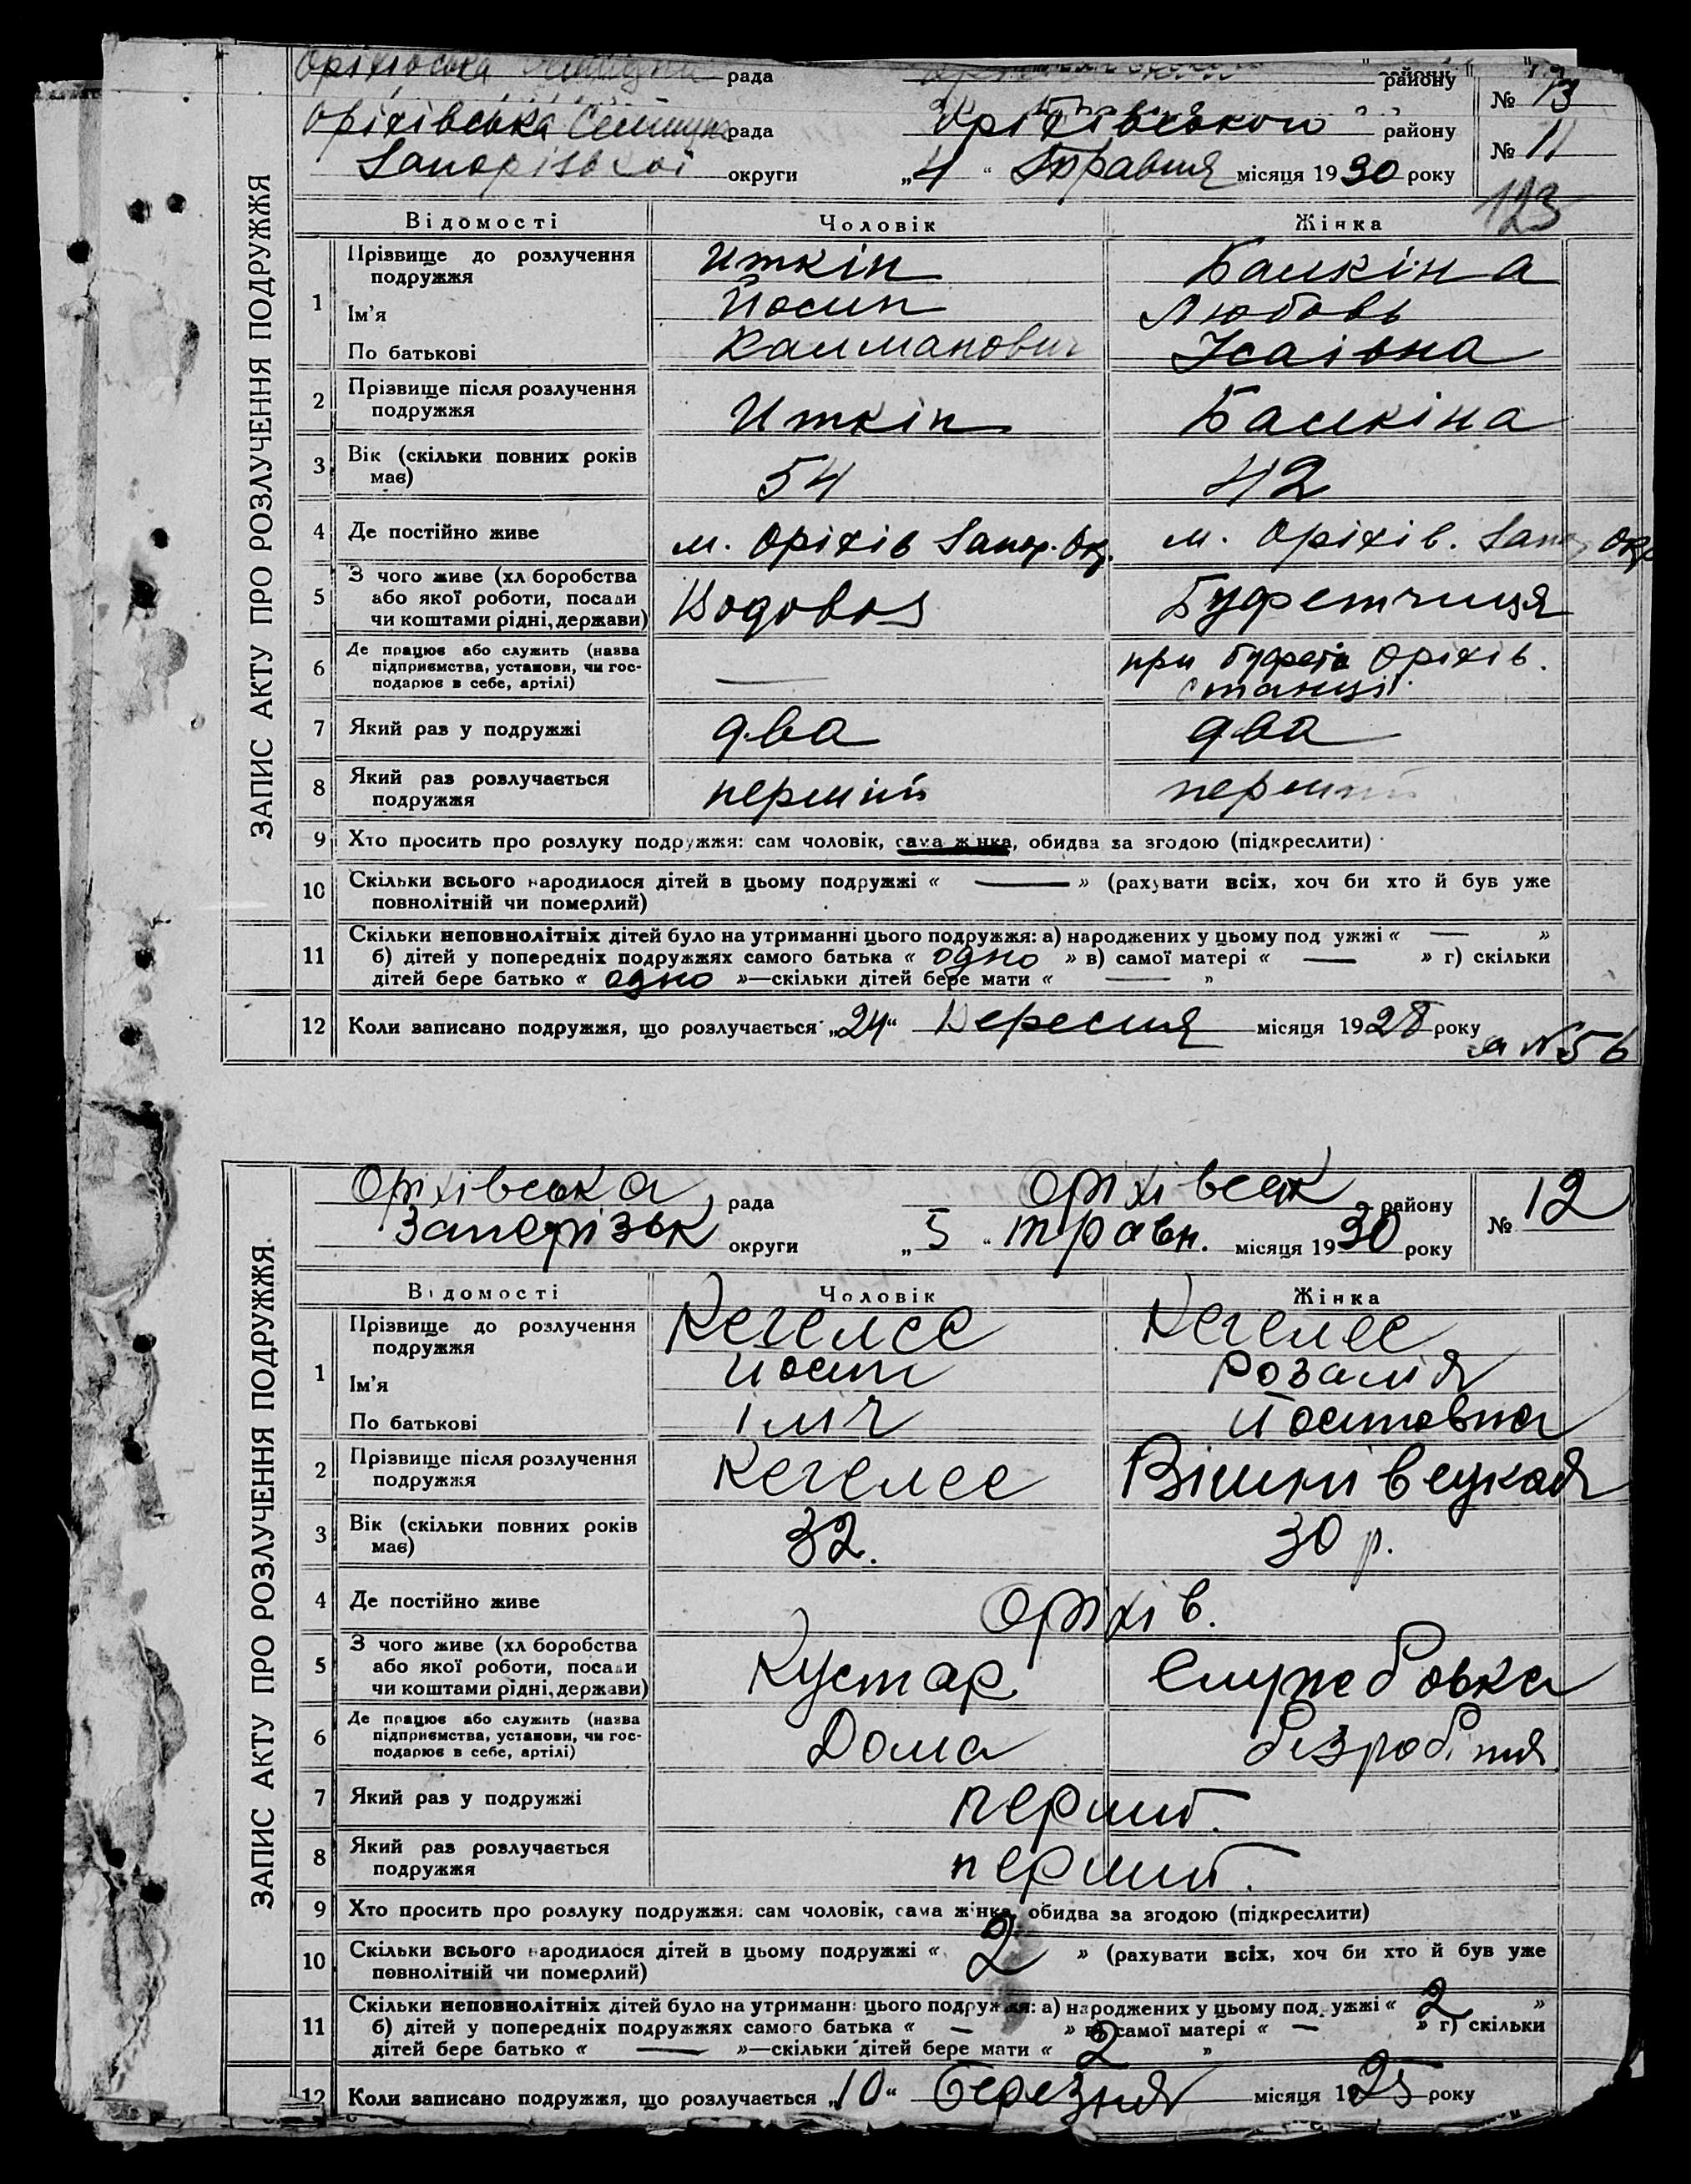 Оріхівська рада району № 13
Оріхівська Селищна рада Оріхівського району № 11
Запорізької округи „4“ Травня місяця 1930 року
123
ЗАПИС АКТУ ПРО РОЗЛУЧЕННЯ ПОДРУЖЖЯ
Відомості Чоловік Жінка
1 Прізвище до розлучення подружжя Иткін Балкіна
Ім'я Йосип Любовь
По батькові Калманович Ісаівна
2 Прізвище після розлучення подружжя Иткін Балкіна
3 Вік (скільки повних років має) 54 42
4 Де постійно живе м. Оріхів Запор. Окр. м. Оріхів. Запор Окр
5 З чого живе (хліборобства або якої роботи, посади чи коштами рідні, держави) Водовоз Буфетчиця
6 Де працює або служить (назва підприємства, установи, чи господарює в себе, артілі) — при буфеті Оріхів. станції.
7 Який раз у подружжі два два
8 Який раз розлучається подружжя перший перший
9 Хто просить про розлуку подружжя: сам чоловік, сама жінка, обидва за згодою (підкреслити)
10 Скільки всього народилося дітей в цьому подружжі « — » (рахувати всіх, хоч би хто й був уже
повнолітній чи померлий)
11 Скільки неповнолітніх дітей було на утриманні цього подружжя: а) народжених у цьому подружжі « — »
б) дітей у попередніх подружжях самого батька « одно » в) самої матері « — » г) скільки
дітей бере батько « одно »—скільки дітей бере мати « — »
12 Коли записано подружжя, що розлучається „24“ Вересня місяця 1928 року
№ 56
Оріхівська рада Оріхівськ району № 12
Запорізьк округи „5“ травн. місяця 1930 року
ЗАПИС АКТУ ПРО РОЗЛУЧЕННЯ ПОДРУЖЖЯ
Відомості Чоловік Жінка
1 Прізвище до розлучення подружжя Кегелес Кегелес
Ім'я Йосип Розалія
По батькові Ілліч Йосиповна
2 Прізвище після розлучення подружжя Кегелес Вішнівецкая
3 Вік (скільки повних років має) 32. 30 р.
4 Де постійно живе Оріхів.
5 З чого живе (хліборобства або якої роботи, посади чи коштами рідні, держави) Кустар. Службовка
6 Де працює або служить (назва підприємства, установи, чи господарює в себе, артілі) Дома безробітня
7 Який раз у подружжі перший.
8 Який раз розлучається подружжя перший.
9 Хто просить про розлуку подружжя: сам чоловік, сама жінка, обидва за згодою (підкреслити)
10 Скільки всього народилося дітей в цьому подружжі « 2 » (рахувати всіх, хоч би хто й був уже
повнолітній чи померлий)
11 Скільки неповнолітніх дітей було на утриманні цього подружжя: а) народжених у цьому подружжі « 2 »
б) дітей у попередніх подружжях самого батька « — » в) самої матері « — » г) скільки
дітей бере батько « — »—скільки дітей бере мати « 2 »
12 Коли записано подружжя, що розлучається „10“ березня місяця 1925 року